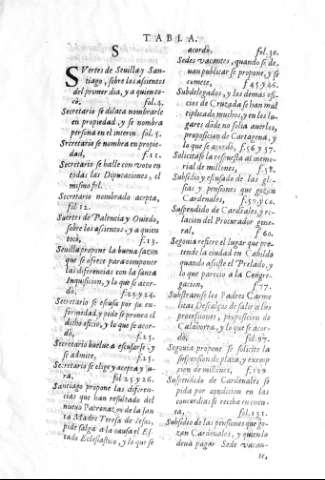 TABLA.
S
SVertes de Seuilla y San-
tiago, sobre los asientos
del primer dia, y a quien to-
cò, fol. 2.
Secretario se dilata nombrarle
en propiedad, y se nombra
persona en el interin. fol. 5.
Secretario se nombra en propie-
dad, f.12.
Secretario se halle con voto en
todas las Diputaciones, el
mismo fol.
Secretario nombrado acepta,
fol 12.
Suertes de Palencia y Ouiedo,
sobre los asientos, y a quien
tocò, f.13.
Seuilla propone la buena
que se ofrece para componer
las diferencias con la santa
Inquisicion, y lo que se acor-
dò, f.23. y 24.
Secretario se escusa por su en-
fermedad, y pide se prouea el
dicho oficio, y lo que se acor-
dò, f.23.
Secretario buelue a escusarse, y
se admite, f.25.
Secretario se elige y acepta y ju-
ra, fol 25 y 26.
Santiago propone las diferen-
cias que han resultado del
nueuo Patronato de la san
ta Madre Teresa de Iesus,
pide salga a la causa el Es
tado Eclesiastico, y lo que se
acordò, fol. 30.
Sedes vacantes, quando se de-
uan publicar se propone, y se
comete, f 45. y 46.
Subdelegados, y los demas ofi-
cios de Cruzada se han mul
tiplicado muchos, y en los lu-
gares dõde no solia auerlos,
proposicion de Cartagena, y
lo que se acordò, f.56 y 57.
Solicitase la respuesta al memo-
rial de millones, f.58.
Subsidio y escusado de las
y pensiones que gozan
Cardenales,
Suspendido de Cardenales, y re-
lacion del Procurador gene-
ral, f 60.
Segouia refiere el lugar que pre-
tende la ciudad en Cabildo
quando asiste el Prelado, y
lo que parecio a la Congre-
gacion, f 77.
los Padres Carme
litas Descalços de salir a las
processiones, proposicion de
Calahorra, y lo que se acor-
dò, fol. 97.
Segouia propone se solicite la
suspension de plata, y exemp
cion de millones, f.129
Suspendido de Cardenales se
pida por condicion en las
concordias se reciba en cuen-
ta, fol.131.
Subsidio de las pensiones que go-
zan Cardenales, y quien lo
deua pagar Sede vacan-
te,